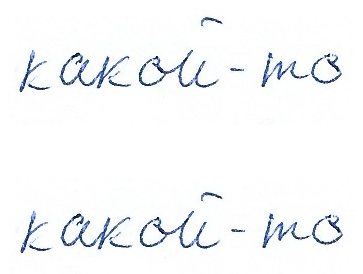 какой-то
какой-то